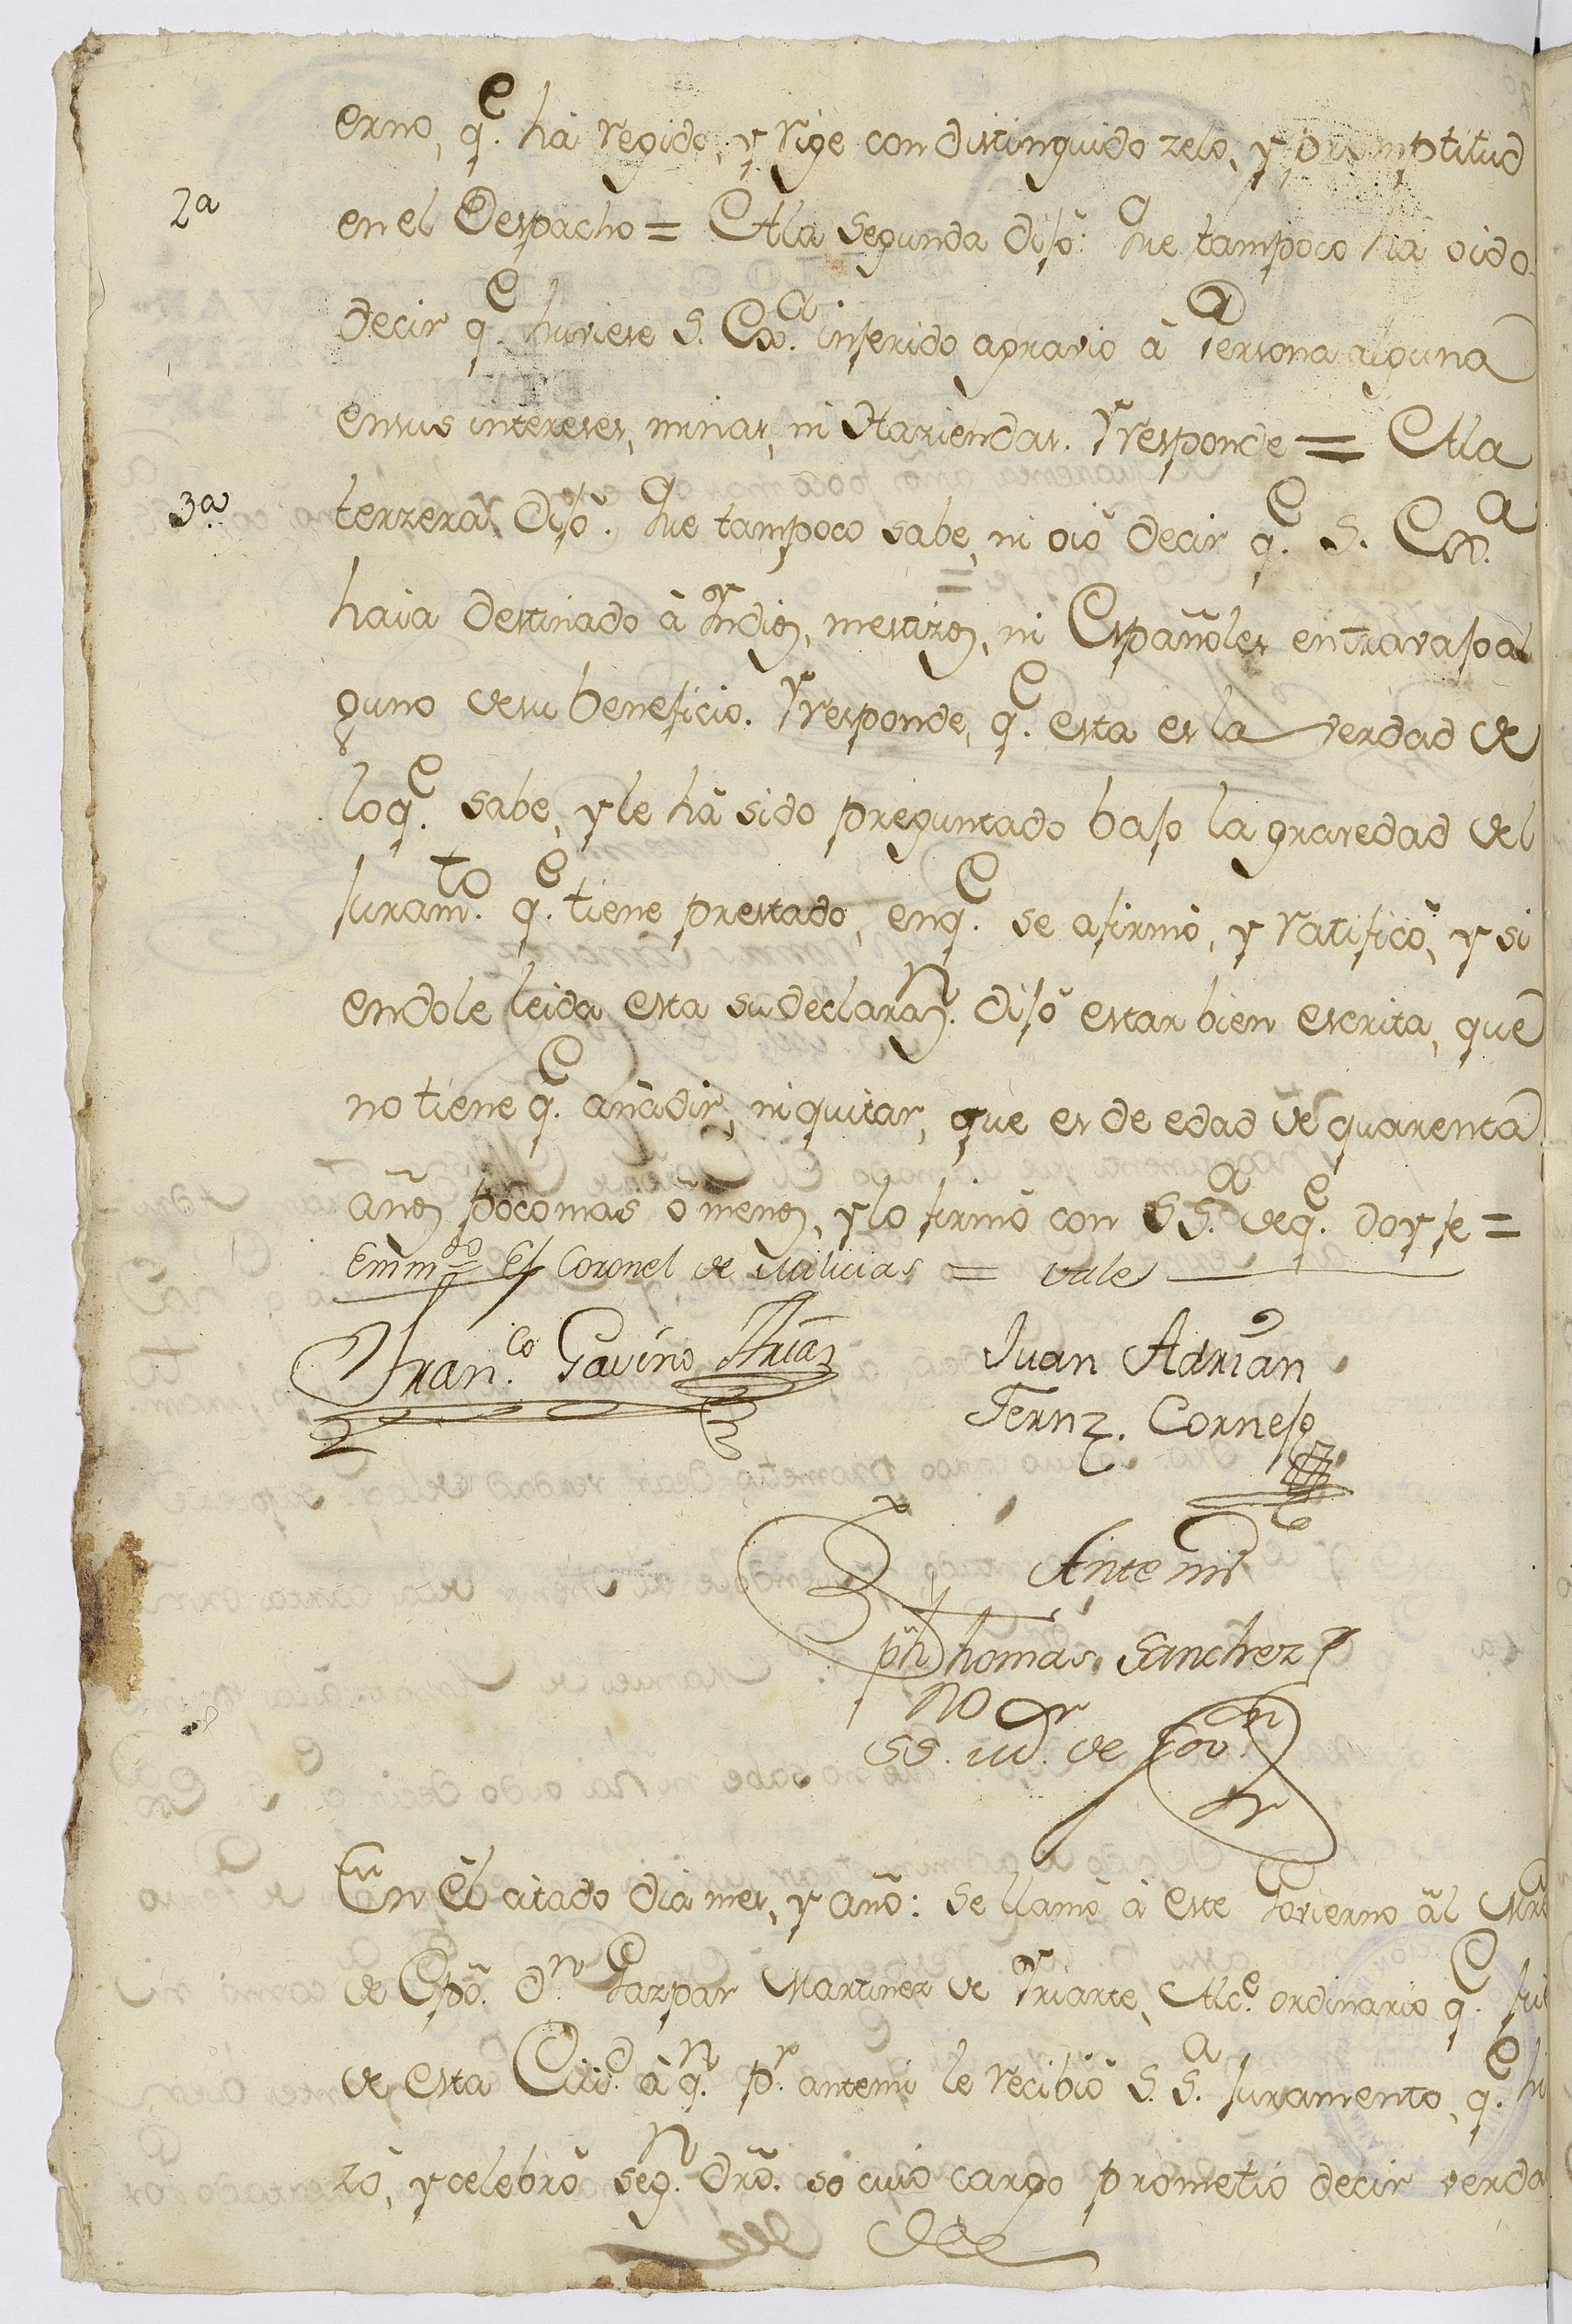 erno, q.e há regido, y rige con distinguido zelo, y promptitud
2a en el Despacho = A la segunda dijo: Que tampoco há oido
decir q.e huviese S. Exa. inferido agravio á Persona alguna
en sus intereses, minas, ni Haziendas. Y responde = A la
3a. terzera Dijo. Que tampoco sabe, ni oió decir q.e S. Exa.
haia destinado á Yndios, mestizos, ni Españoles en travajo al
guno de su beneficio. Y responde, q.e esta es la verdad de
lo q.e sabe, y le há sido preguntado bajo la gravedad del
Juram.to q.e tiene prestado, en q.e se afirmó, y ratificó, y si
endole leida esta su declaraz.n dijo estar bien escrita, que
no tiene q.e añadir, ni quitar, que es de edad de quarenta
años poco mas ó menos, y lo firmó con S S.a de q.e doy fe =
Enm.do = Coronel de Milicias = vale
Fran.co Gavino Arias Juan Adrian
Fernz. Cornejo
Ante mi
Ph Thomas Sanchez
SS. de Gov.n
En el citado dia mes, y año: se llamó á este Govierno ál
de Cpo. Dn. Gazpar Martinez de Yriarte, Alc.e ordinario q.e
de esta Ciud. á q.n p.r ante mi le recibió S. S.a Juramento, q.e hi
zó, y celebró seg.n dró. so cuio cargo prometió decir verda